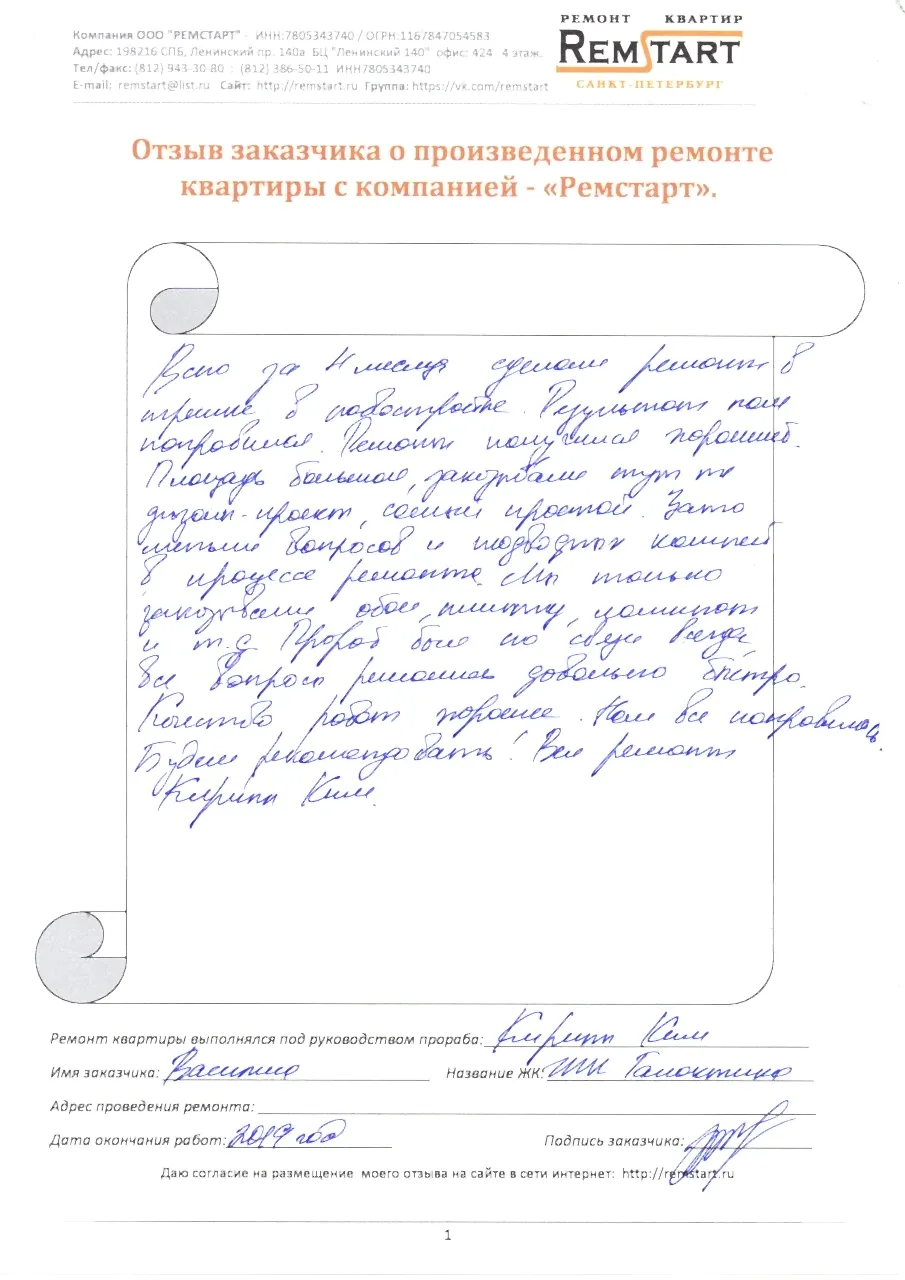 Компания ООО "РЕМСТАРТ" - ИНН:7805343740 / ОГРН:1167847054583
Адрес: 198216 СПБ, Ленинский пр. 140а БЦ "Ленинский 140" офис: 424 4 этаж.
Тел/факс: (812) 943-30-80 : (812) 386-50-11 ИНН7805343740
E-mail: remstart@list.ru Сайт: http://remstart.ru Группа: https://vk.com/remstart
РЕМОНТ КВАРТИР
REMSTART
САНКТ-ПЕТЕРБУРГ
Отзыв заказчика о произведенном ремонте
квартиры с компанией - «Ремстарт».
Всего за 4 месяца сделали ремонт в
трешке в новостройке. Результат нам
понравился. Ремонт получился хороший.
Площадь большая, заказывали тут же
дизайн-проект, самый простой. Зато
меньше вопросов и подводных камней
в процессе ремонта. Мы только
заказывали обои, плитку, ламинат
и т.д Прораб был на связи всегда,
все вопросы решались довольно быстро.
Качество работ хорошее. Нам все понравилось.
Будем рекомендовать! Вел ремонт
Кирилл Ким.
Ремонт квартиры выполнялся под руководством прораба: Кирилл Ким
Имя заказчика: Василиса Название ЖК: ЖК Галактика
Адрес проведения ремонта:
Дата окончания работ: 2019 год Подпись заказчика:
Даю согласие на размещение моего отзыва на сайте в сети интернет: http://remstart.ru
1